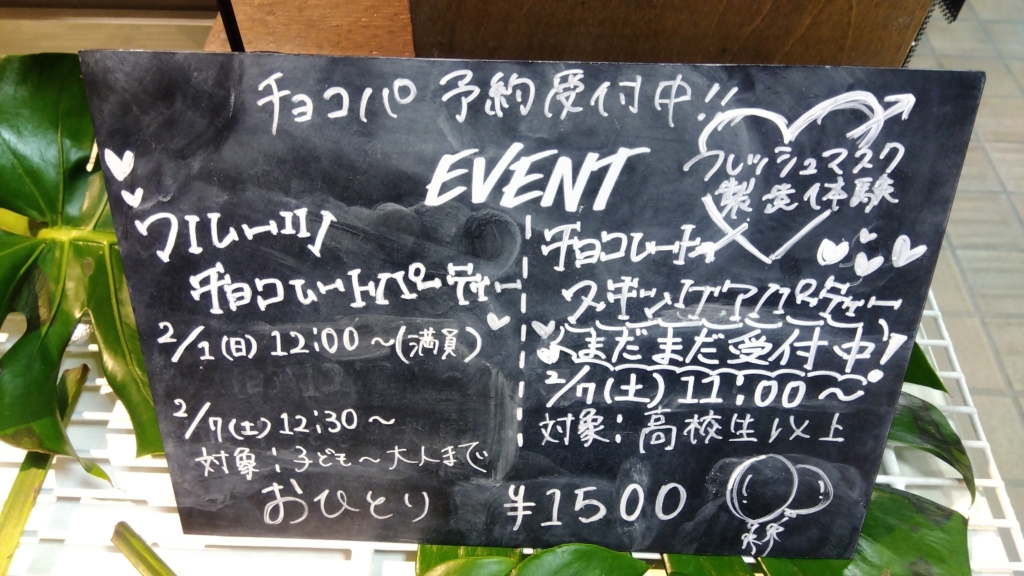 チョコパ 予約受付中!!
EVENT
フレッシュマスク
製造体験
フルーツ
チョコレートパーティー
2/1(日) 12:00 ~(満員)
2/7(土) 12:30 ~
対象:子ども~大人まで
チョコレート
スキンケアパーティー
まだまだ受付中!
2/7(土) 11:00 ~
対象:高校生以上
おひとり ¥1500